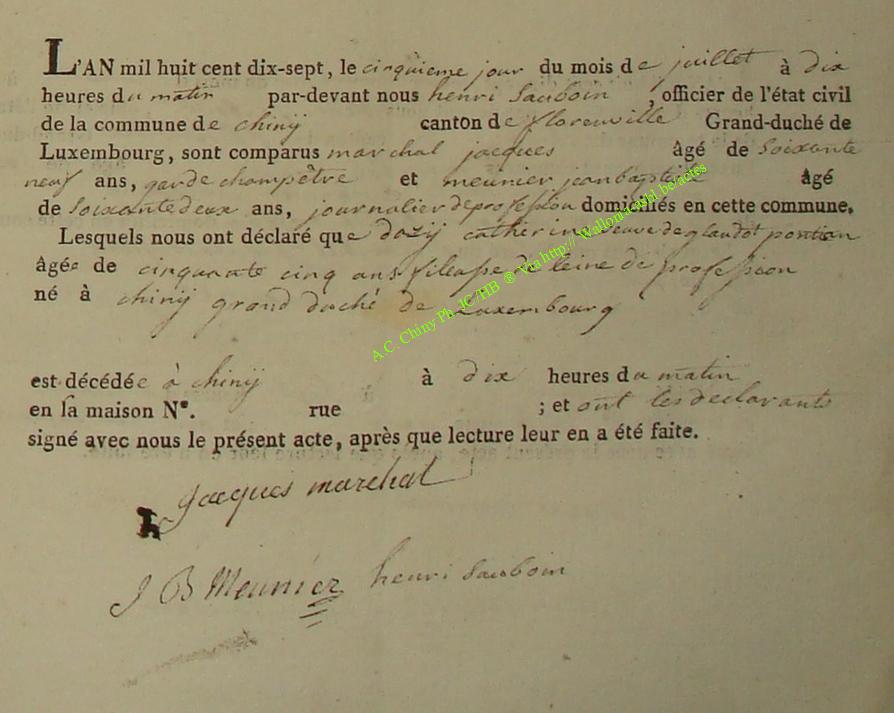 L'AN mil huit cent dix-sept, le cinquieme jour du mois de juillet à dix
heures du matin par-devant nous henri Sauboin, officier de l'état civil
de la commune de chinij canton de florenville Grand-duché de
Luxembourg, sont comparus marchal jacques âgé de soixante
neuf ans, garde champêtre et meunier jean baptiste âgé
de soixante deux ans, journalier de profession domiciliés en cette commune.
Lesquels nous ont déclaré que dozij catherin veuve de glaudot pontian
âgée de cinquante cinq ans fileuse de leine de profession
né à chinij grand duché de Luxembourg
A.C. Chiny Ph. JC/HB ® Via http:// Wallonia.
est décédée à chinij à dix heures du matin
en la maison N°. rue ; et ont les declarants
signé avec nous le présent acte, après que lecture leur en a été faite.
jacques marchal
J B Meunier henri Sauboin